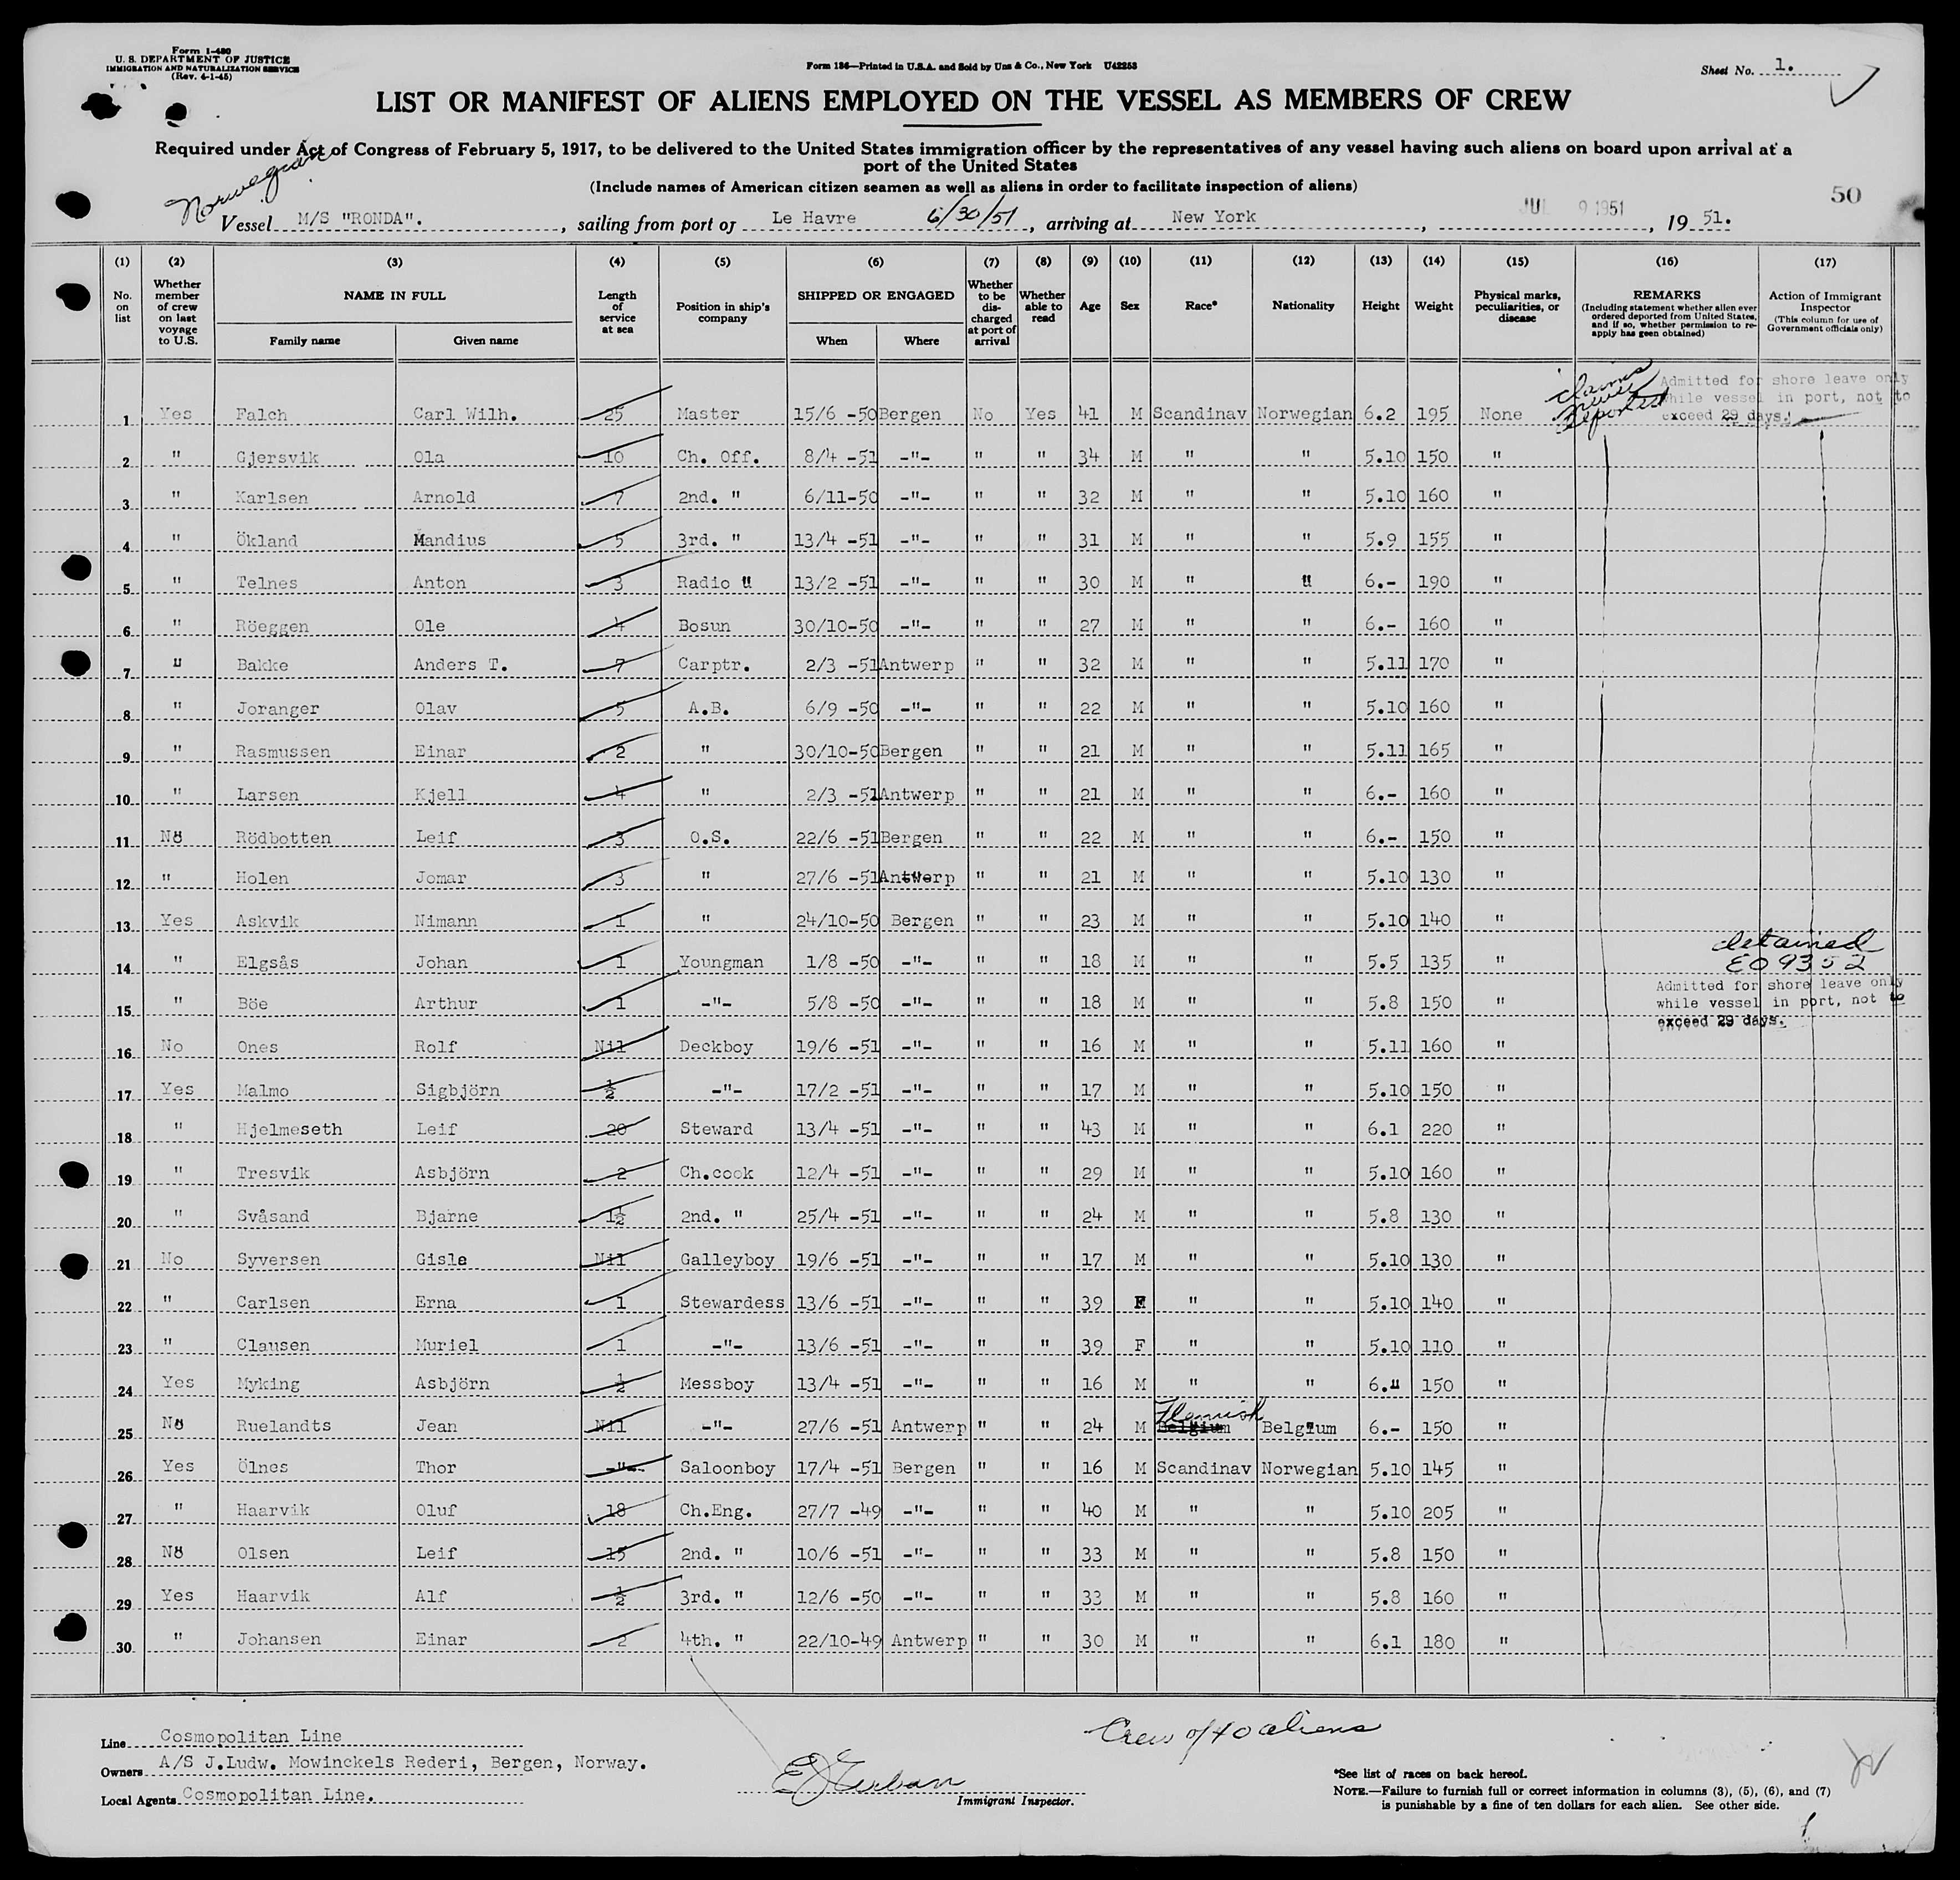 Form 1-480
U. S. DEPARTMENT OF JUSTICE
IMMIGRATION AND NATURALIZATION SERVICE
(Rev. 4-1-45)
Form 186—Printed in U.S.A. and Sold by Unz & Co., New York U42253
Sheet No. 1.
LIST OR MANIFEST OF ALIENS EMPLOYED ON THE VESSEL AS MEMBERS OF CREW
Required under Act of Congress of February 5, 1917, to be delivered to the United States immigration officer by the representatives of any vessel having such aliens on board upon arrival at a
port of the United States
(Include names of American citizen seamen as well as aliens in order to facilitate inspection of aliens)
Norwegian
50
Vessel M/S "RONDA". , sailing from port of Le Havre 6/30/51 , arriving at New York , JUL 9 1951 , 19 51.
(1) (2) (3) (4) (5) (6) (7) (8) (9) (10) (11) (12) (13) (14) (15) (16) (17)
No. on list
Whether member of crew on last voyage to U.S.
NAME IN FULL
Family name
Given name
Length of service at sea
Position in ship's company
SHIPPED OR ENGAGED
When
Where
Whether to be discharged at port of arrival
Whether able to read
Age
Sex
Race*
Nationality
Height
Weight
Physical marks, peculiarities, or disease
REMARKS
(Including statement whether alien ever ordered deported from United States, and if so, whether permission to re-apply has been obtained)
Action of Immigrant Inspector
(This column for use of Government officials only)
claims never deported
Admitted for shore leave only
while vessel in port, not to
exceed 29 days.
1 Yes Falch Carl Wilh. 25 Master 15/6 -50 Bergen No Yes 41 M Scandinav Norwegian 6.2 195 None
2 " Gjersvik Ola 10 Ch. Off. 8/4 -51 -"- " " 34 M " " 5.10 150 "
3 " Karlsen Arnold 7 2nd. " 6/11-50 -"- " " 32 M " " 5.10 160 "
4 " Ökland Mandius 5 3rd. " 13/4 -51 -"- " " 31 M " " 5.9 155 "
5 " Telnes Anton 3 Radio " 13/2 -51 -"- " " 30 M " " 6.- 190 "
6 " Röeggen Ole 4 Bosun 30/10-50 -"- " " 27 M " " 6.- 160 "
7 " Bakke Anders T. 7 Carptr. 2/3 -51 Antwerp " " 32 M " " 5.11 170 "
8 " Joranger Olav 5 A.B. 6/9 -50 -"- " " 22 M " " 5.10 160 "
9 " Rasmussen Einar 2 " 30/10-50 Bergen " " 21 M " " 5.11 165 "
10 " Larsen Kjell 4 " 2/3 -51 Antwerp " " 21 M " " 6.- 160 "
11 No Rödbotten Leif 3 O.S. 22/6 -51 Bergen " " 22 M " " 6.- 150 "
12 " Holen Jomar 3 " 27/6 -51 Antwerp " " 21 M " " 5.10 130 "
13 Yes Askvik Nimann 1 " 24/10-50 Bergen " " 23 M " " 5.10 140 "
14 " Elgsås Johan 1 Youngman 1/8 -50 -"- " " 18 M " " 5.5 135 " detained EO 9352
15 " Böe Arthur 1 -"- 5/8 -50 -"- " " 18 M " " 5.8 150 "
Admitted for shore leave only
while vessel in port, not to
exceed 29 days.
16 No Ones Rolf Nil Deckboy 19/6 -51 -"- " " 16 M " " 5.11 160 "
17 Yes Malmo Sigbjörn ½ -"- 17/2 -51 -"- " " 17 M " " 5.10 150 "
18 " Hjelmeseth Leif 20 Steward 13/4 -51 -"- " " 43 M " " 6.1 220 "
19 " Tresvik Asbjörn 2 Ch.cook 12/4 -51 -"- " " 29 M " " 5.10 160 "
20 " Svåsand Bjarne 1½ 2nd. " 25/4 -51 -"- " " 24 M " " 5.8 130 "
21 No Syversen Gisle Nil Galleyboy 19/6 -51 -"- " " 17 M " " 5.10 130 "
22 " Carlsen Erna 1 Stewardess 13/6 -51 -"- " " 39 F " " 5.10 140 "
23 " Clausen Muriel 1 -"- 13/6 -51 -"- " " 39 F " " 5.10 110 "
24 Yes Myking Asbjörn ½ Messboy 13/4 -51 -"- " " 16 M " " 6.- 150 "
25 No Ruelandts Jean Nil -"- 27/6 -51 Antwerp " " 24 M Belgium Flemish Belgium 6.- 150 "
26 Yes Ölnes Thor -"- Saloonboy 17/4 -51 Bergen " " 16 M Scandinav Norwegian 5.10 145 "
27 " Haarvik Oluf 18 Ch.Eng. 27/7 -49 -"- " " 40 M " " 5.10 205 "
28 No Olsen Leif 15 2nd. " 10/6 -51 -"- " " 33 M " " 5.8 150 "
29 Yes Haarvik Alf ½ 3rd. " 12/6 -50 -"- " " 33 M " " 5.8 160 "
30 " Johansen Einar 2 4th. " 22/10-49 Antwerp " " 30 M " " 6.1 180 "
Line Cosmopolitan Line
Owners A/S J.Ludw. Mowinckels Rederi, Bergen, Norway.
Local Agents Cosmopolitan Line.
Crew of 40 aliens
Immigrant Inspector.
*See list of races on back hereof.
NOTE.—Failure to furnish full or correct information in columns (3), (5), (6), and (7)
is punishable by a fine of ten dollars for each alien. See other side.